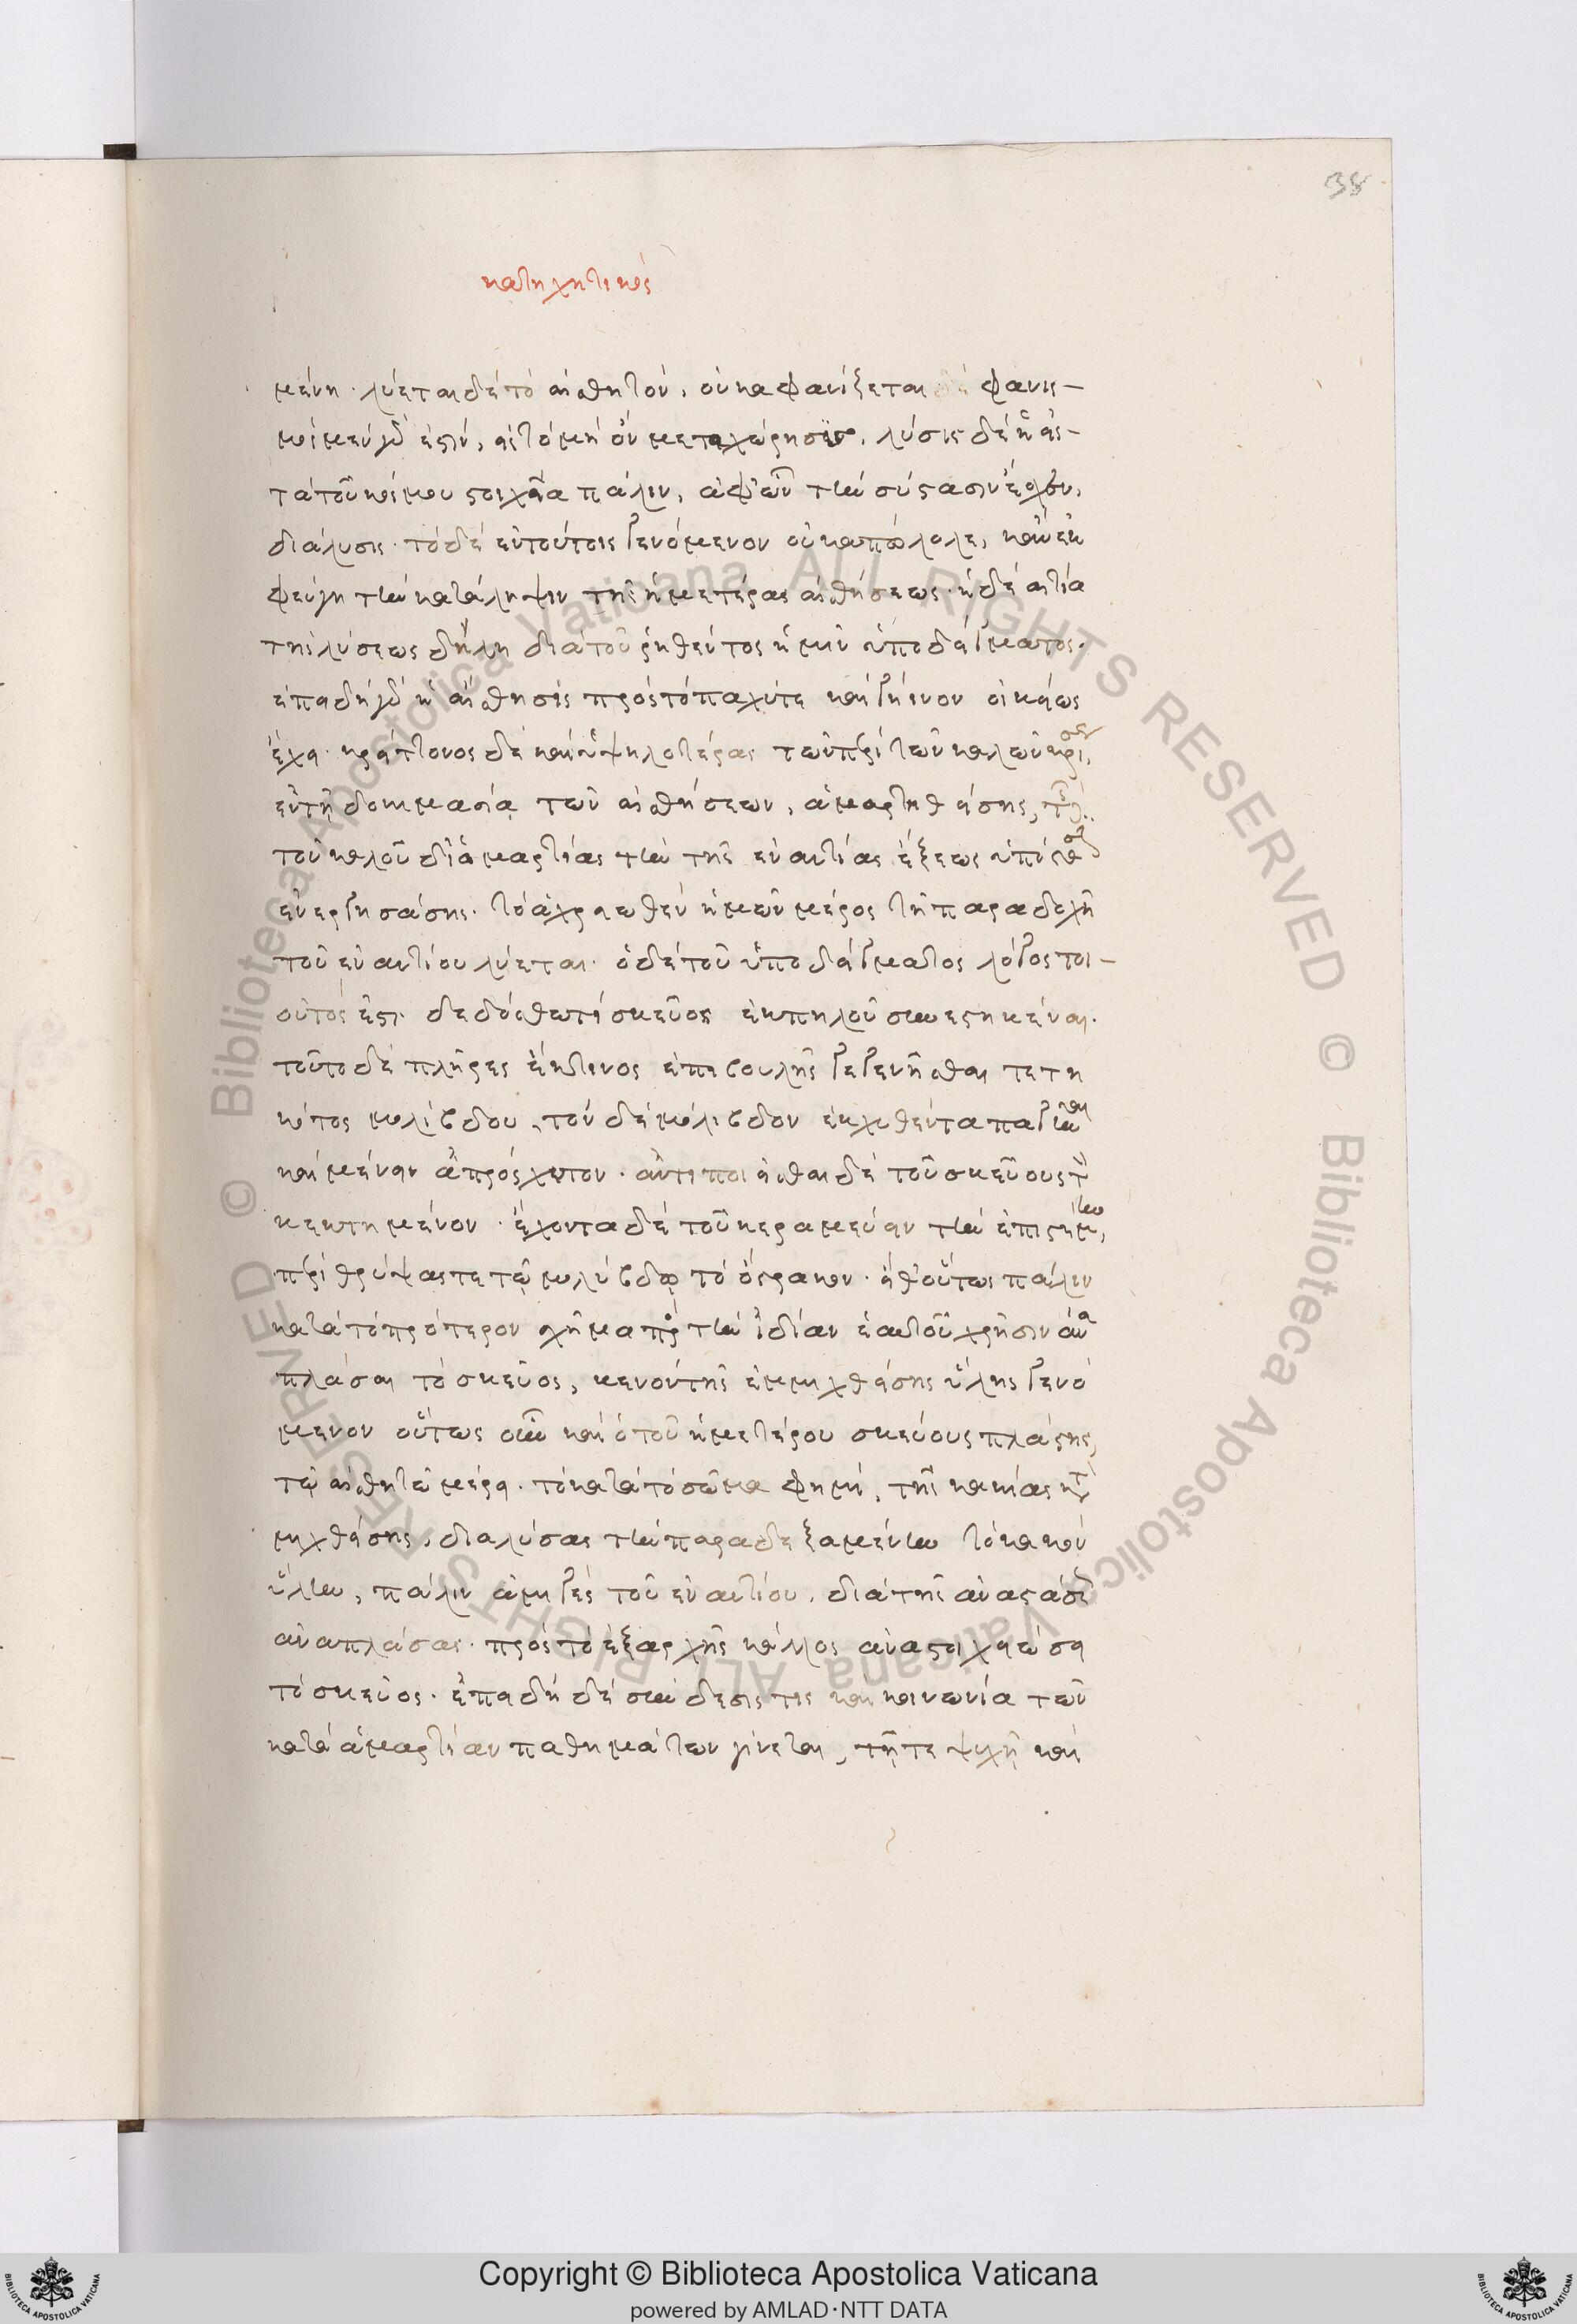 38
κατηχητικός
μένη. λύεται δὲ τὸ αἰσθητόν, οὐκ ἀφανίζεται δέ ἀφανισ-
μὸς μὲν γάρ ἐστιν, ἡ εἰς τὸ μὴ ὂν μεταχώρησις. λύσις δὲ ἡ εἰς
τὰ τοῦ κόσμου στοιχεῖα πάλιν, ἀφ' ὧν τὴν σύστασιν ἔσχεν,
διάλυσις. τὸ δὲ ἐν τούτοις γενόμενον οὐκ ἀπόλωλε, κἂν ἐκ
φεύγῃ τὴν κατάληψιν τῆς ἡμετέρας αἰσθήσεως. ἡ δὲ αἰτία
τῆς λύσεως δήλη διὰ τοῦ ῥηθέντος ἡμῖν ὑποδείγματος.
ἐπειδὴ γὰρ ἡ αἴσθησις πρὸς τὸ παχύ τε καὶ γήινον οἰκείως
ἔχει. κρείττονος δὲ καὶ ὑψηλοτέρας τῶν περὶ τῶν καλῶν κρίσεως
ἐν τῇ δοκιμασίᾳ τῶν αἰσθήσεων, ἁμαρτηθείσης,
τοῦ καλοῦ διαμαρτίας τὴν τῆς ἐναντίας ἕξεως ὑπόστασιν
ἐνεργησάσης. τὸ ἀχρειωθὲν ἡμῶν μέρος τῇ παραδοχῇ
τοῦ ἐναντίου λύεται. ὁ δὲ τοῦ ὑποδείγματος λόγος τοι-
οῦτός ἐστι. δεδόσθω τι σκεῦος ἐκ πηλοῦ συνεστηκέναι.
τοῦτο δὲ πλῆρες ἔκ τινος ἐπιβουλῆς γεγενῆσθαι τετη
κότος μολίβδου, τὸν δὲ μόλιβδον ἐκχυθέντα παγῆναι
καὶ μένειν ἀπρόσχυτον. ἀντιποιεῖσθαι δὲ τοῦ σκεύους τὸν
κεκτημένον. ἔχοντα δὲ τοῦ κεραμεύειν τὴν ἐπιστήμην,
περιθρύψαι τε τῷ μολύβδῳ τὸ ὄστρακον. εἶθ' οὕτως πάλιν
κατὰ τὸ πρότερον σχῆμα πρὸς τὴν ἰδίαν ἑαυτοῦ χρῆσιν ἀνα
πλάσαι τὸ σκεῦος, κενὸν τῆς ἐμμιχθείσης ὕλης γενό
μενον οὕτως οὖν καὶ ὁ τοῦ ἡμετέρου σκεύους πλάστης,
τῷ αἰσθητῷ μέρει. τὸ κατὰ τὸ σῶμα φημί, τῆς κακίας κατα
μιχθείσης, διαλύσας τὴν παραδεξαμένην τὸ κακὸν
ὕλην, πάλιν ἀμιγὲς τοῦ ἐναντίου, διὰ τῆς ἀναστάσεως
ἀναπλάσας. πρὸς τὸ ἐξ ἀρχῆς κάλλος ἀναστοιχειώσει
τὸ σκεῦος. ἐπειδὴ δὲ σύνδεσίς τις καὶ κοινωνία τῶν
κατὰ ἁμαρτίαν παθημάτων γίνεται, τῇ τε ψυχῇ καὶ
Copyright © Biblioteca Apostolica Vaticana
powered by AMLAD·NTT DATA